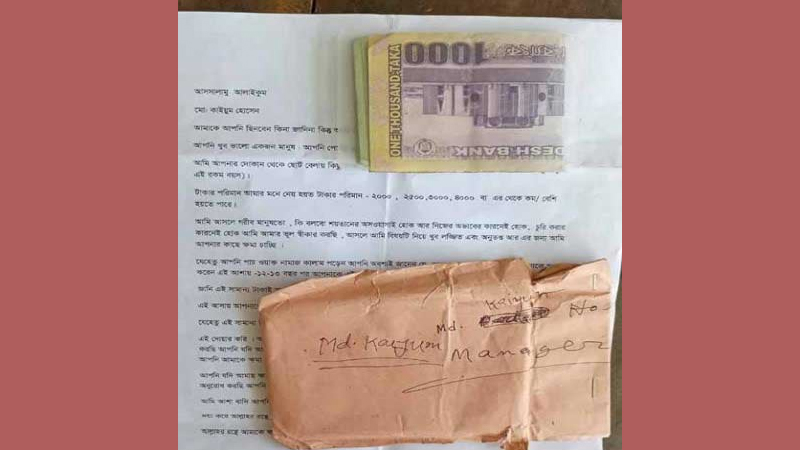 আসসালামু আলাইকুম
মো: কাইয়ুম হোসেন
আমাকে আপনি ছিনবেন কিনা জানিনা কিন্তু
আপনি খুব ভালো একজন মানুষ। আপনি
আমি আপনার দোকান থেকে ছোট বেলায়
এই রকম বয়স)।
টাকার পরিমান আমার মনে নেয় হয়ত টাকার পরিমান - ২০০০ , ২৫০০,৩০০০, ৪০০০ বা এর থেকে কম/ বেশি
হয়তে পারে।
আমি আসলে গরীব মানুষতো , কি বলবো শয়তানের অসওয়াসাই হোক আর নিজের অভাবের কারনেই হোক, চুরি করার
কারনেই হোক আমি আমার ভুল স্বীকার করছি , আসলে আমি বিষয়টি নিয়ে খুব লজ্জিত এবং অনুতপ্ত আর এর জন্য আমি
আপনার কাছে ক্ষমা চাচ্ছি ।
যেহেতু আপনি পাচ ওয়াক্ত নামাজ কালাম পড়েন আপনি অবশ্যই জানেন
করেন এই আশায় -১২-১৩ বছর পর আপনাকে
জানি এই সামান্য টাকাই
এই আশায় আপনাকে
যেহেতু এই সামান্য
এই দোয়ার করি ।
করছি আপনি যদি
আপনি আমাকে ক্ষমা
আপনি যদি আমায়
অনুরোধ করছি আপনি
আমি আশা রাখি আপনি
দয়া করে আল্লাহর
আল্লাহর রাস্তে আমাকে
1000
ONE THOUSAND TAKA
DESH BANK
Kaiyum
Md. Ho
Md. Kaiyum
Manager